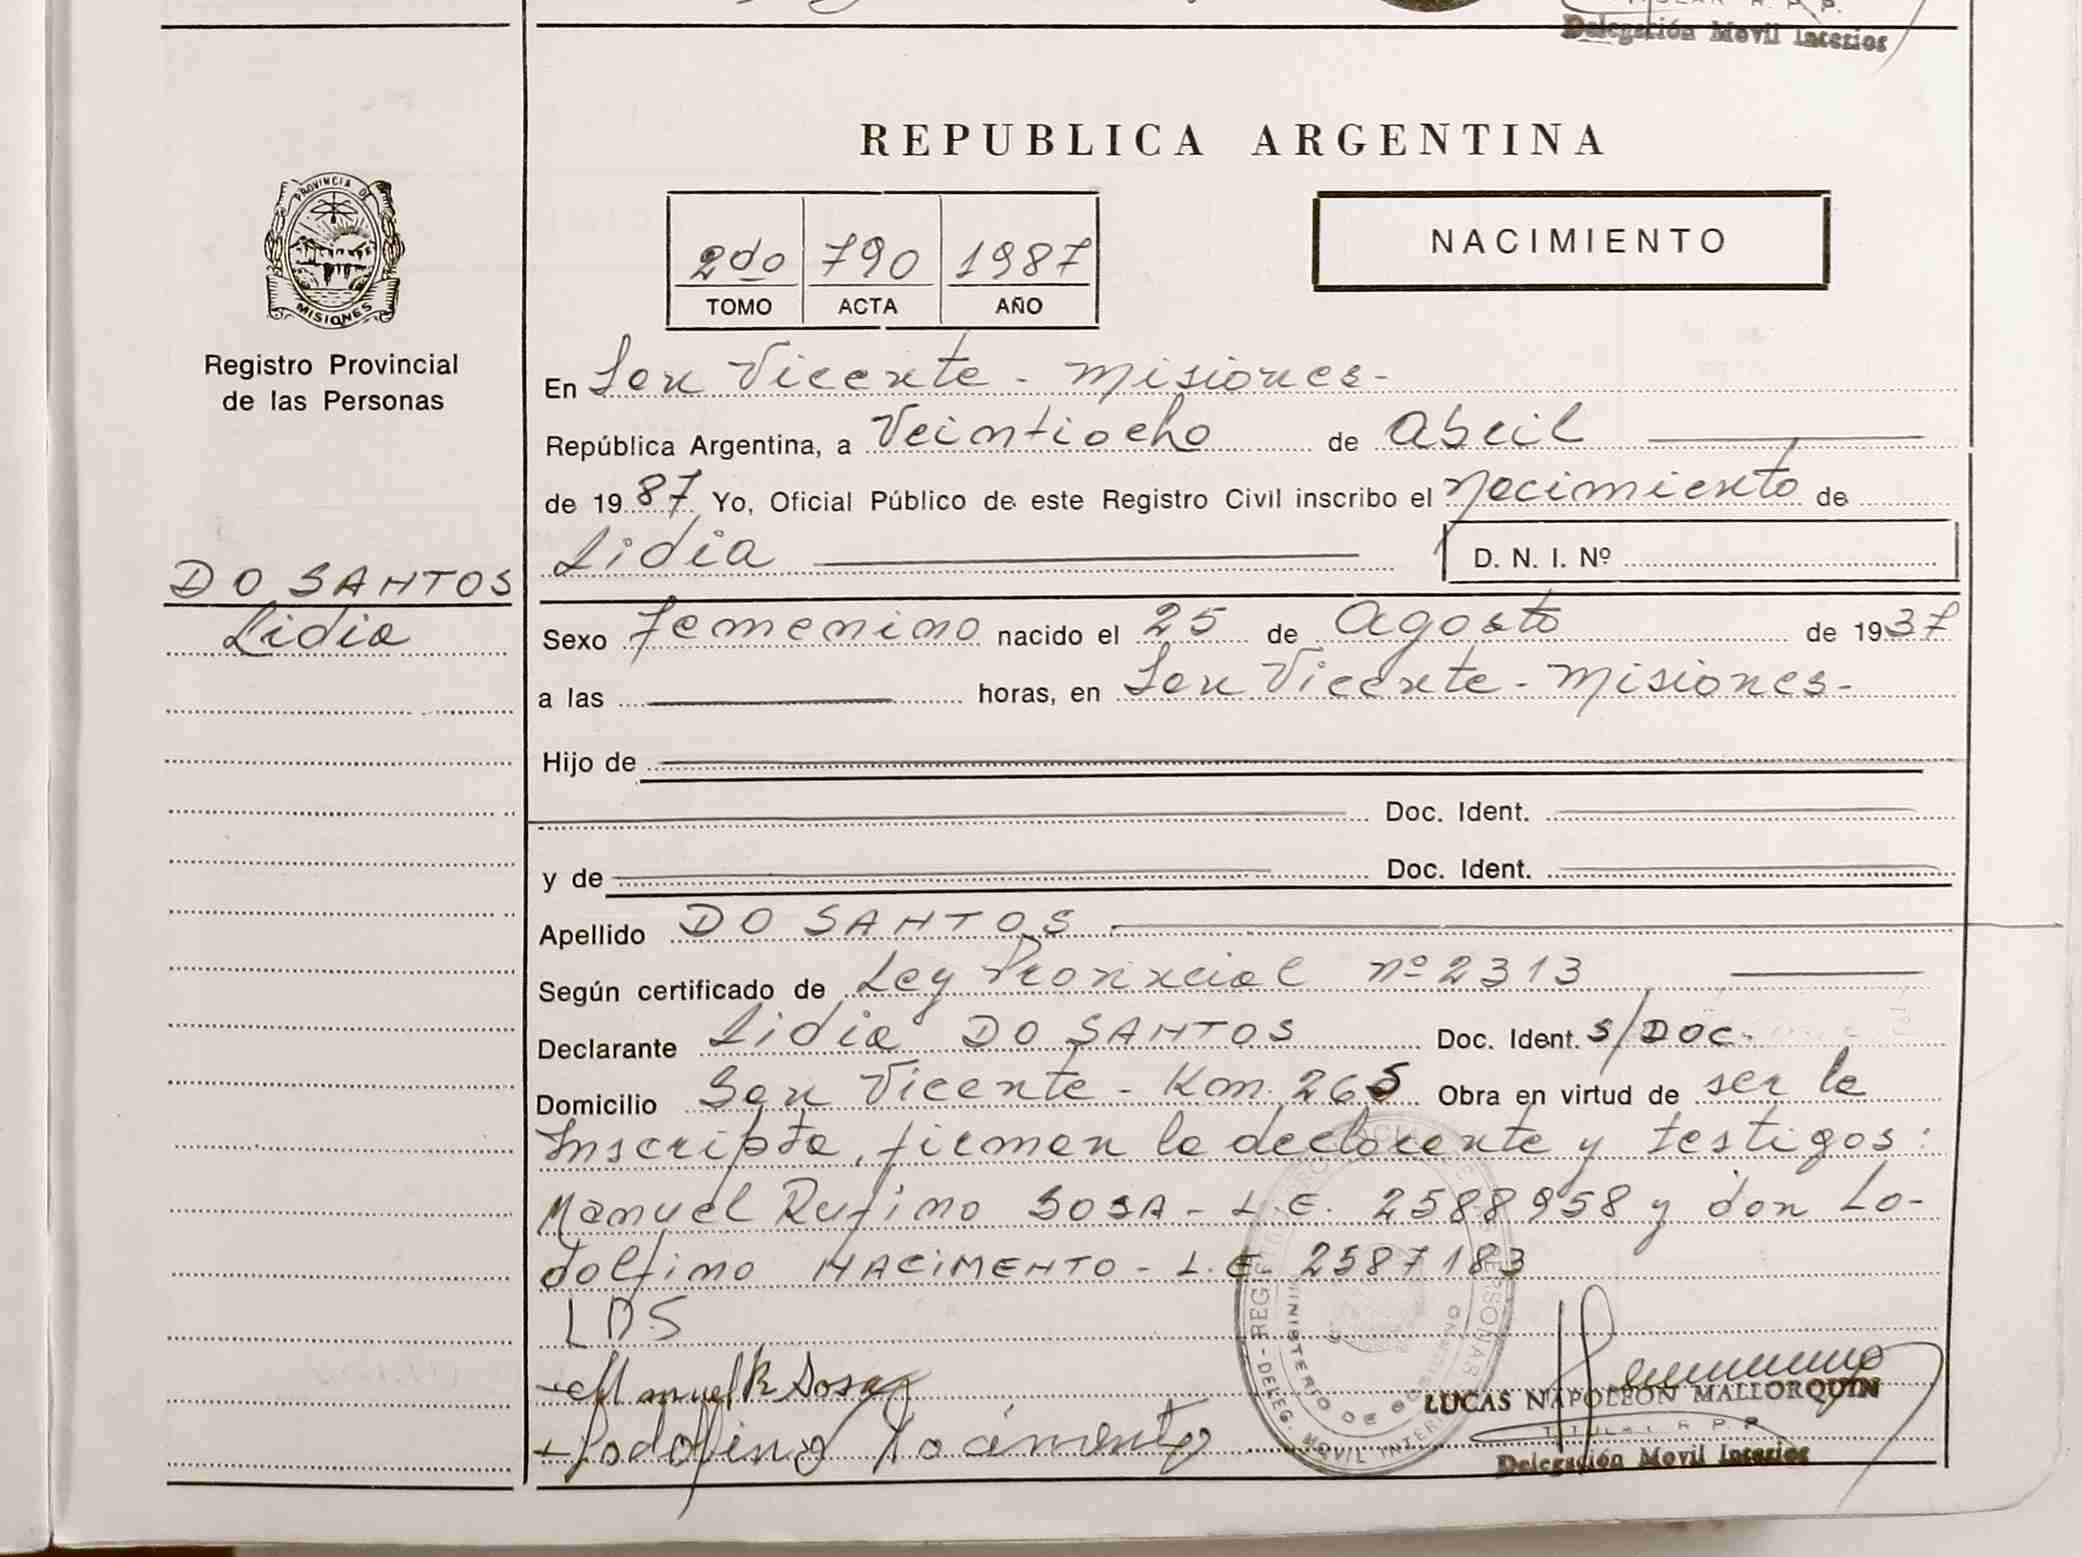 TITULAR R. P. P.
Delegación Movil Interior
REPUBLICA ARGENTINA
PROVINCIA DE
MISIONES
Registro Provincial
de las Personas
2do 790 1987
TOMO ACTA AÑO
NACIMIENTO
En San Vicente - Misiones -
República Argentina, a Veintiocho de Abril
de 1987 Yo, Oficial Público de este Registro Civil inscribo el Nacimiento de
Lidia D. N. I. Nº
DO SANTOS
Lidia
Sexo Femenino nacido el 25 de Agosto de 1937
a las horas, en San Vicente - Misiones -
Hijo de
Doc. Ident.
y de Doc. Ident.
Apellido DO SANTOS
Según certificado de Ley Provincial nº 2313
Declarante Lidia DO SANTOS Doc. Ident. S/DOC.
Domicilio San Vicente - Km. 265 Obra en virtud de ser la
Inscripta, firman la declarante y testigos:
Manuel Rufino SOSA - L.E. 2588958 y don Lo-
dolfino NACIMENTO - L.E 2587183
LDS
Manuel R Sosa
Lodolfino Nacimento
LUCAS NAPOLEON MALLORQUIN
TITULAR R P P
Delegación Movil Interior
MINISTERIO DE GOBIERNO
DELEG. MOVIL INTERIOR